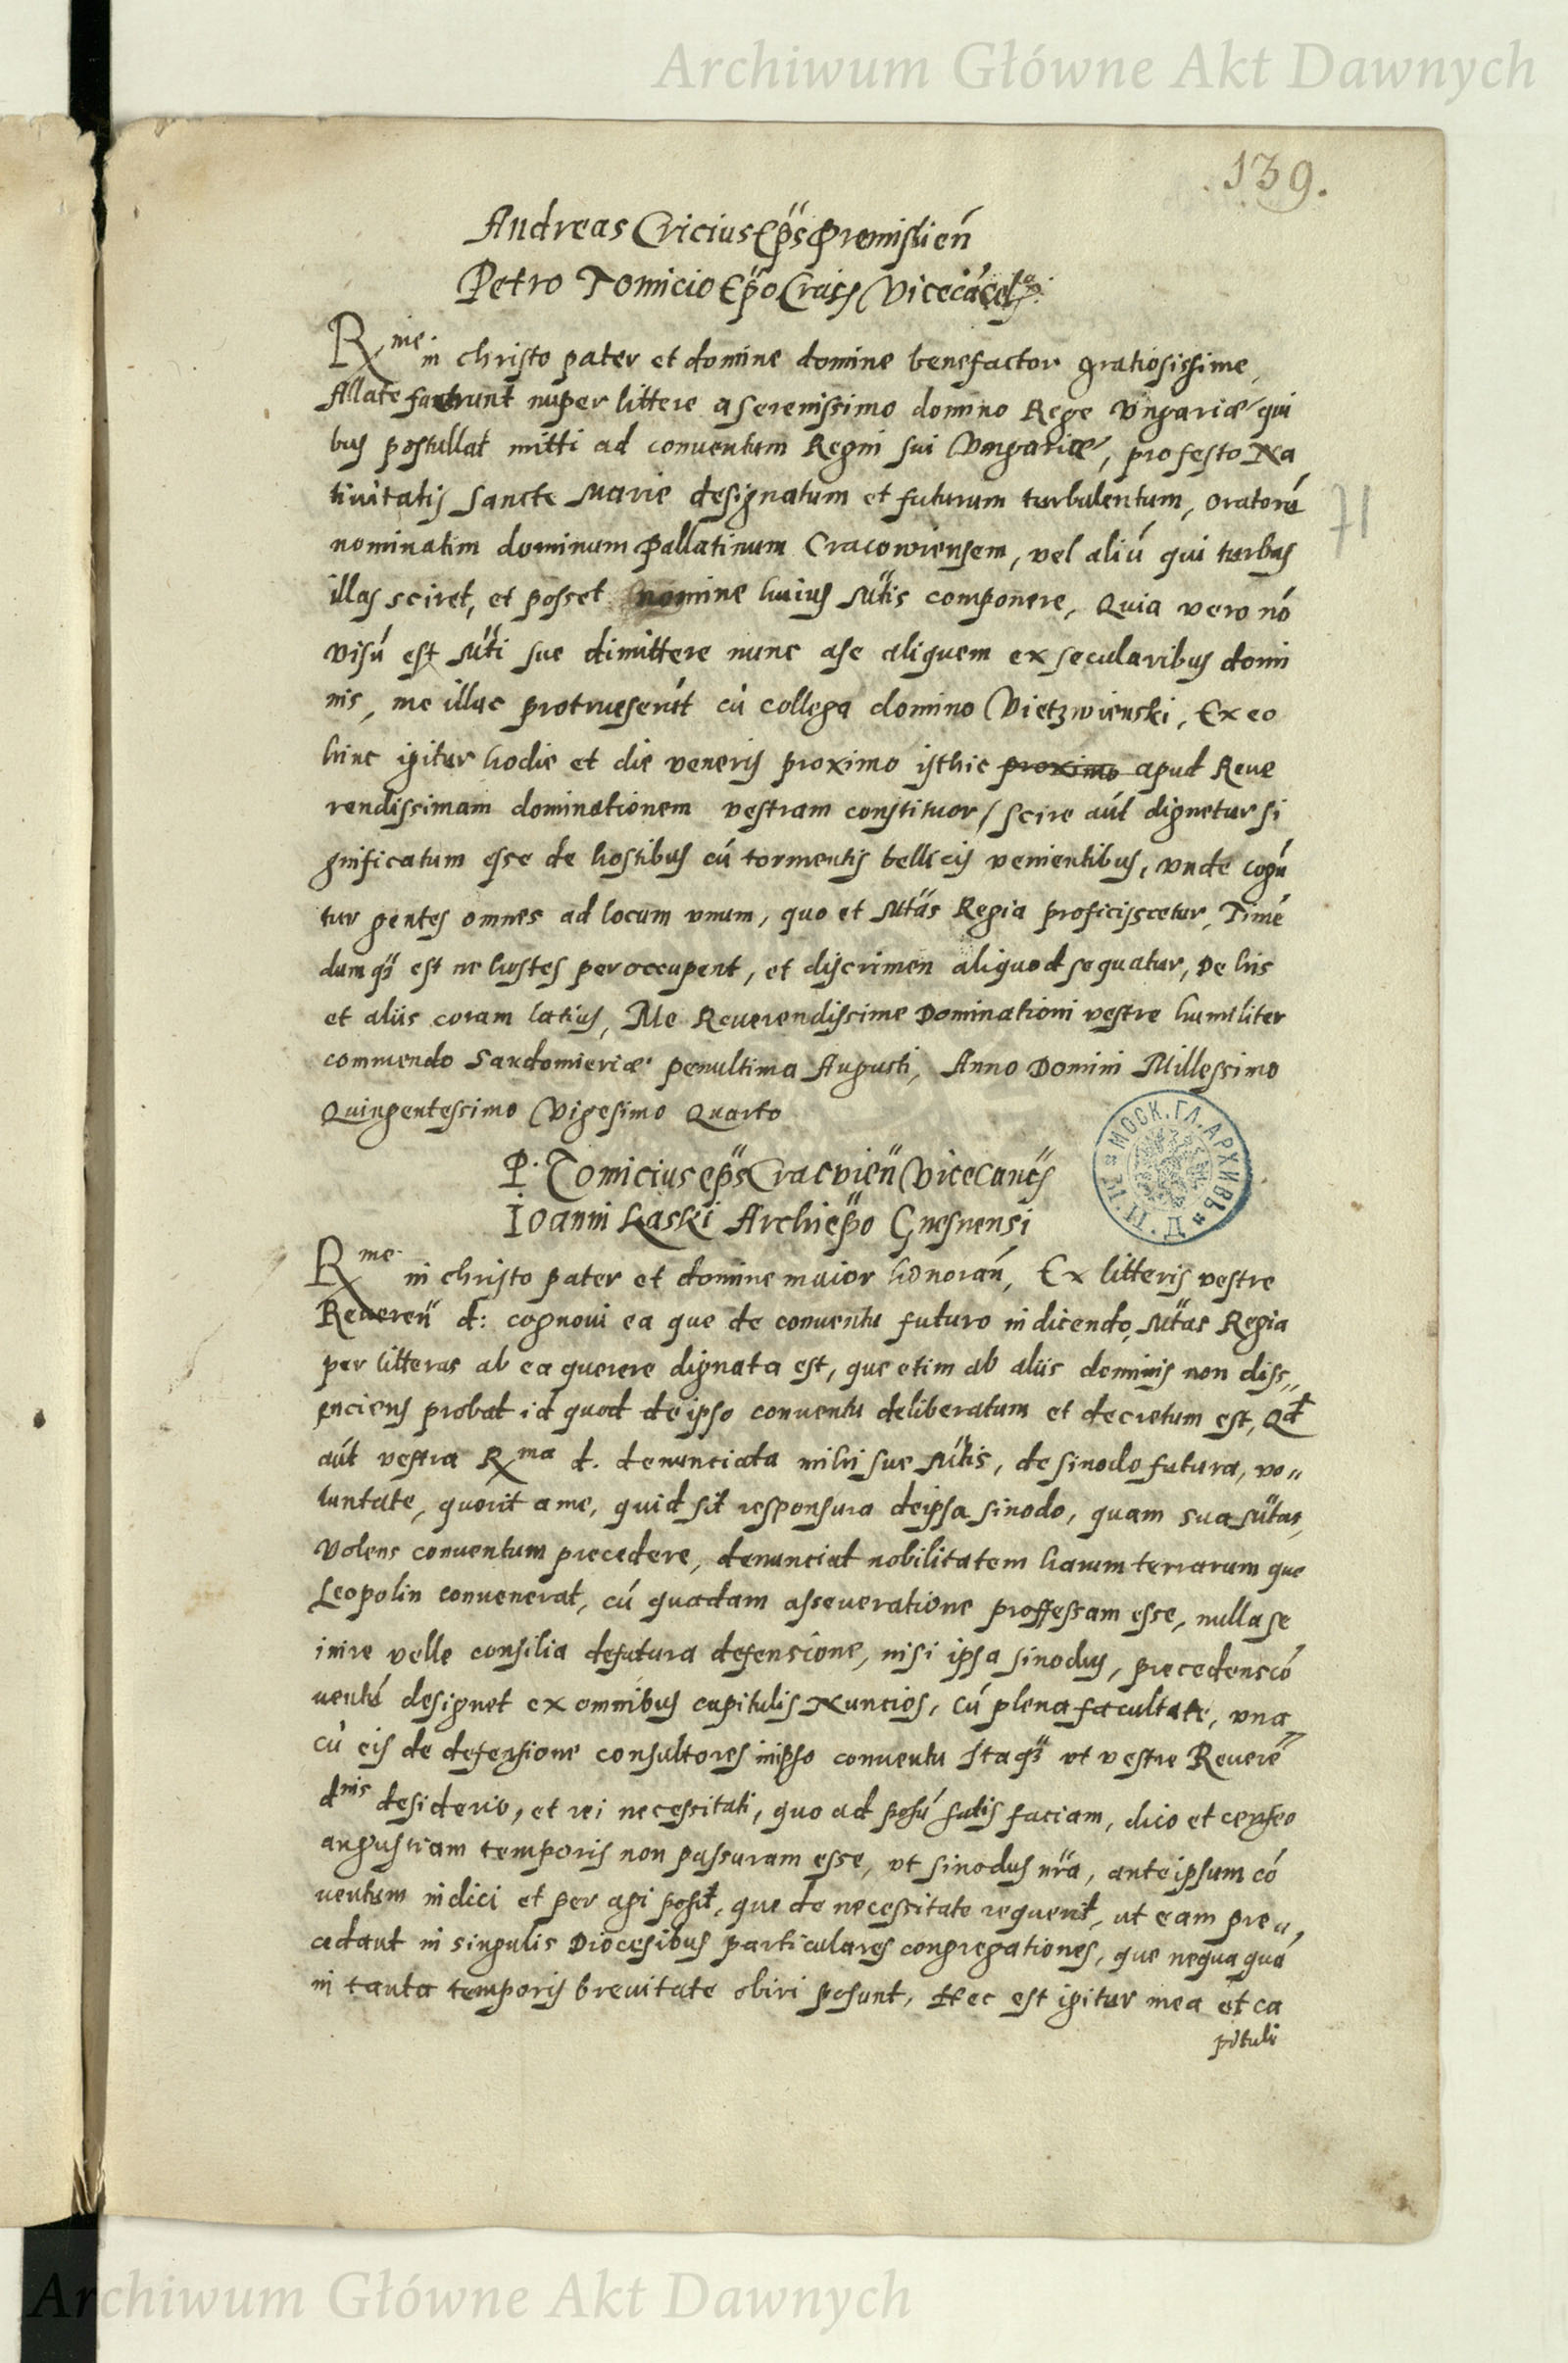 Archiwum Główne Akt Dawnych
.139.
Andreas Cricius Ep̃s Premislień
Petro Tomicio Ep̃o Crac̃ Vicecácel.
R me. in christo pater et domine domine benefactor gratiosissime,
Allate fuerunt nuper littere a serenissimo domino Rege Vngariæ qui
bus postullat mitti ad conventum Regni sui Vngariæ, pro festo Na
tiuitatis Sancte Marie designatum et futurum turbulentum, oratoré
71
nominatim dominum Pallatinum Cracowiensem, vel aliú qui turbas
illas sciret, et posset nomine huius Mt̃is componere, Quia vero nó
visú est Mt̃i sue dimittere nunc a se aliquem ex secularibus domi
nis, me illuc protruserút cú collega domino Vietzwienski, Ex eo
hinc igitur hodie et die veneris proximo isthic proximo apud Reue
rendissimam dominationem vestram constituor / scire aút dignetur si
gnificatum esse de hostibus cú tormentis bellicis venientibus, vnde cogú
tur gentes omnes ad locum vnum, quo et Mt̃as Regia proficisscetur, Timé
dumq3 est ne hostes peroccupent, et discrimen aliquod sequatur, De his
et aliis coram latius, Me Reuerendissime Dominationi vestre humiliter
commendo Sandomieriæ penultima Augusti, Anno Domini Millessimo
Quingentessimo Vigesimo Quarto
МОСК. ГЛ. АРХИВЪ
P. Tomicius ep̃s Cracvień Vicecanc̃
Ioanni Laski Archiep̃o Gnesnensi
R me. in christo pater et domine maior honorań, Ex litteris vestre
Reuereñ d: cognoui ea que de conuentu futuro indicendo, Mt̃as Regia
per litteras ab ea querere dignata est, que etim ab aliis dominis non diss„
enciens probat id quod de ipso conuentu deliberatum et decretum est, Qd
aút vestra R ma d. denunciata mihi sue Mt̃is, de sinodo futura, vo„
luntate, querit a me, quid sit responsura de ipsa sinodo, quam sua Mt̃as,
Volens conuentum precedere, denunciat nobilitatem harum terrarum que
Leopolin conuenerat, cú quadam asseueratione proffessam esse, nulla se
inire velle consilia de futura defensione, nisi ipsa sinodus, precedens có
uentú designet ex omnibus capitulis Nuncios, cú plena facultate, vna
cú eis de defensione consultores in ipso conuentu Itaq3 vt vestre Reueré
d nis desiderio, et rei necessitati, quo ad posú satis faciam, dico et censeo
angustiam temporis non passuram esse, vt sinodus nr̃a, ante ipsum có
uentum indici et per agi posit, que de necessitate requerit, ut eam pre„
cedant in singulis Diocesibus particulares congregationes, que nequa quá
in tanta temporis breuitate obiri posunt, Hec est igitur mea et ca
pituli
Archiwum Główne Akt Dawnych